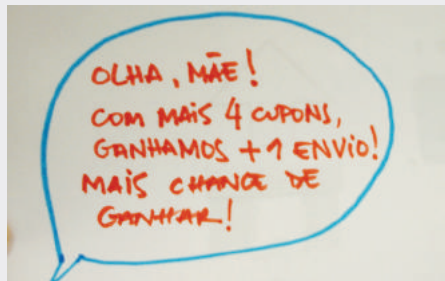 OLHA, MÃE!
COM MAIS 4 CUPONS,
GANHAMOS + 1 ENVIO!
MAIS CHANCE DE
GANHAR!